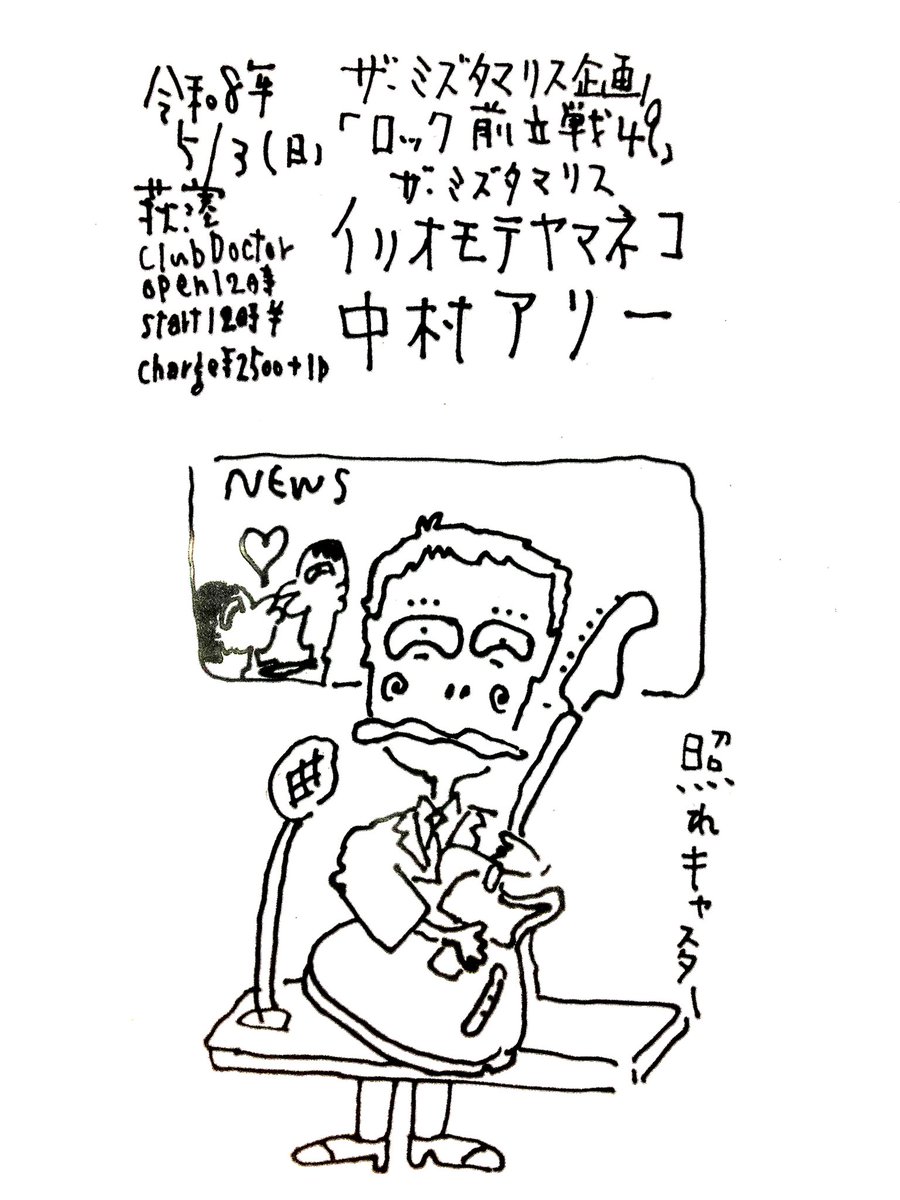 令和8年
5/3(日)
荻窪
club Doctor
open12時
start12時半
charge¥2500+1D
ザ・ミズタマリス企画
「ロック前立戦49」
ザ・ミズタマリス
イリオモテヤマネコ
中村アリー
NEWS
照れキャスター